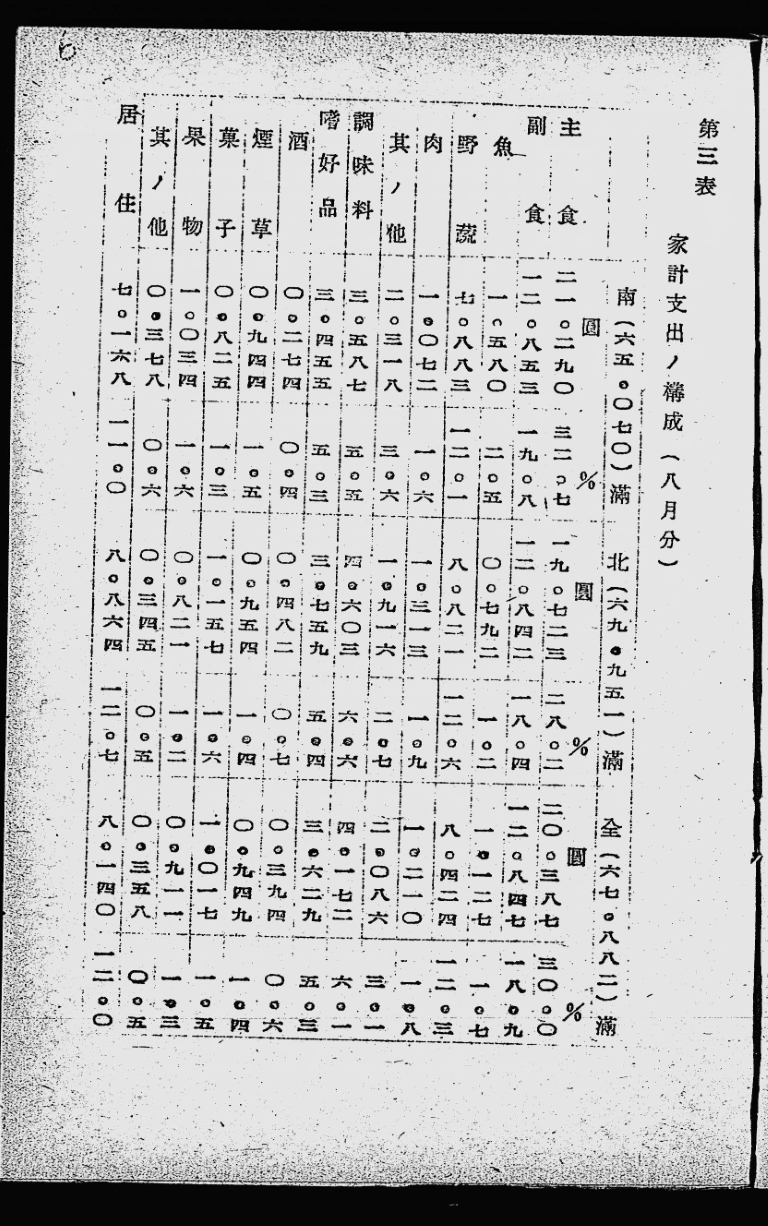 6
第三表
家計支出ノ構成(八月分)
南(六五。〇七〇)滿 北(六九。九五一)滿 全(六七。八八二)滿
圓 % 圓 % 圓 %
主食 二一。二九〇 三二。七 一九。七二三 二八。二 二〇。三八七 三〇。〇
副食 一二。八五三 一九。八 一二。八四二 一八。四 一二。八四七 一八。九
魚 一。五八〇 二。五 〇。七九二 一。二 一。一二七 一。七
野蔬 七。八八三 一二。一 八。八二一 一二。六 八。四二四 一二。三
肉 一。〇七二 一。六 一。三一三 一。九 一。二一〇 一。八
其ノ他 二。三一八 三。六 一。九一六 二。七 二。〇八六 三。一
調味料 三。五八七 五。五 四。六〇三 六。六 四。一七二 六。一
嗜好品 三。四五五 五。三 三。七五九 五。四 三。六二九 五。三
酒 〇。二七四 〇。四 〇。四八二 〇。七 〇。三九四 〇。六
煙草 〇。九四四 一。五 〇。九五四 一。四 〇。九四九 一。四
菓子 〇。八二五 一。三 一。一五七 一。六 一。〇一七 一。五
果物 一。〇三四 一。六 〇。八二一 一。二 〇。九一一 一。三
其ノ他 〇。三七八 〇。六 〇。三四五 〇。五 〇。三五八 〇。五
居住 七。一六八 一一。〇 八。八六四 一二。七 八。一四〇 一二。〇